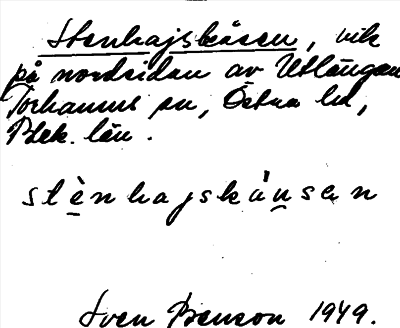 Stenhajskåsen, vik
på nordsidan av Utlängan
Torhamns sn, Östra hd,
Blek. län.
stènhajskåusen
Sven Benson 1949.